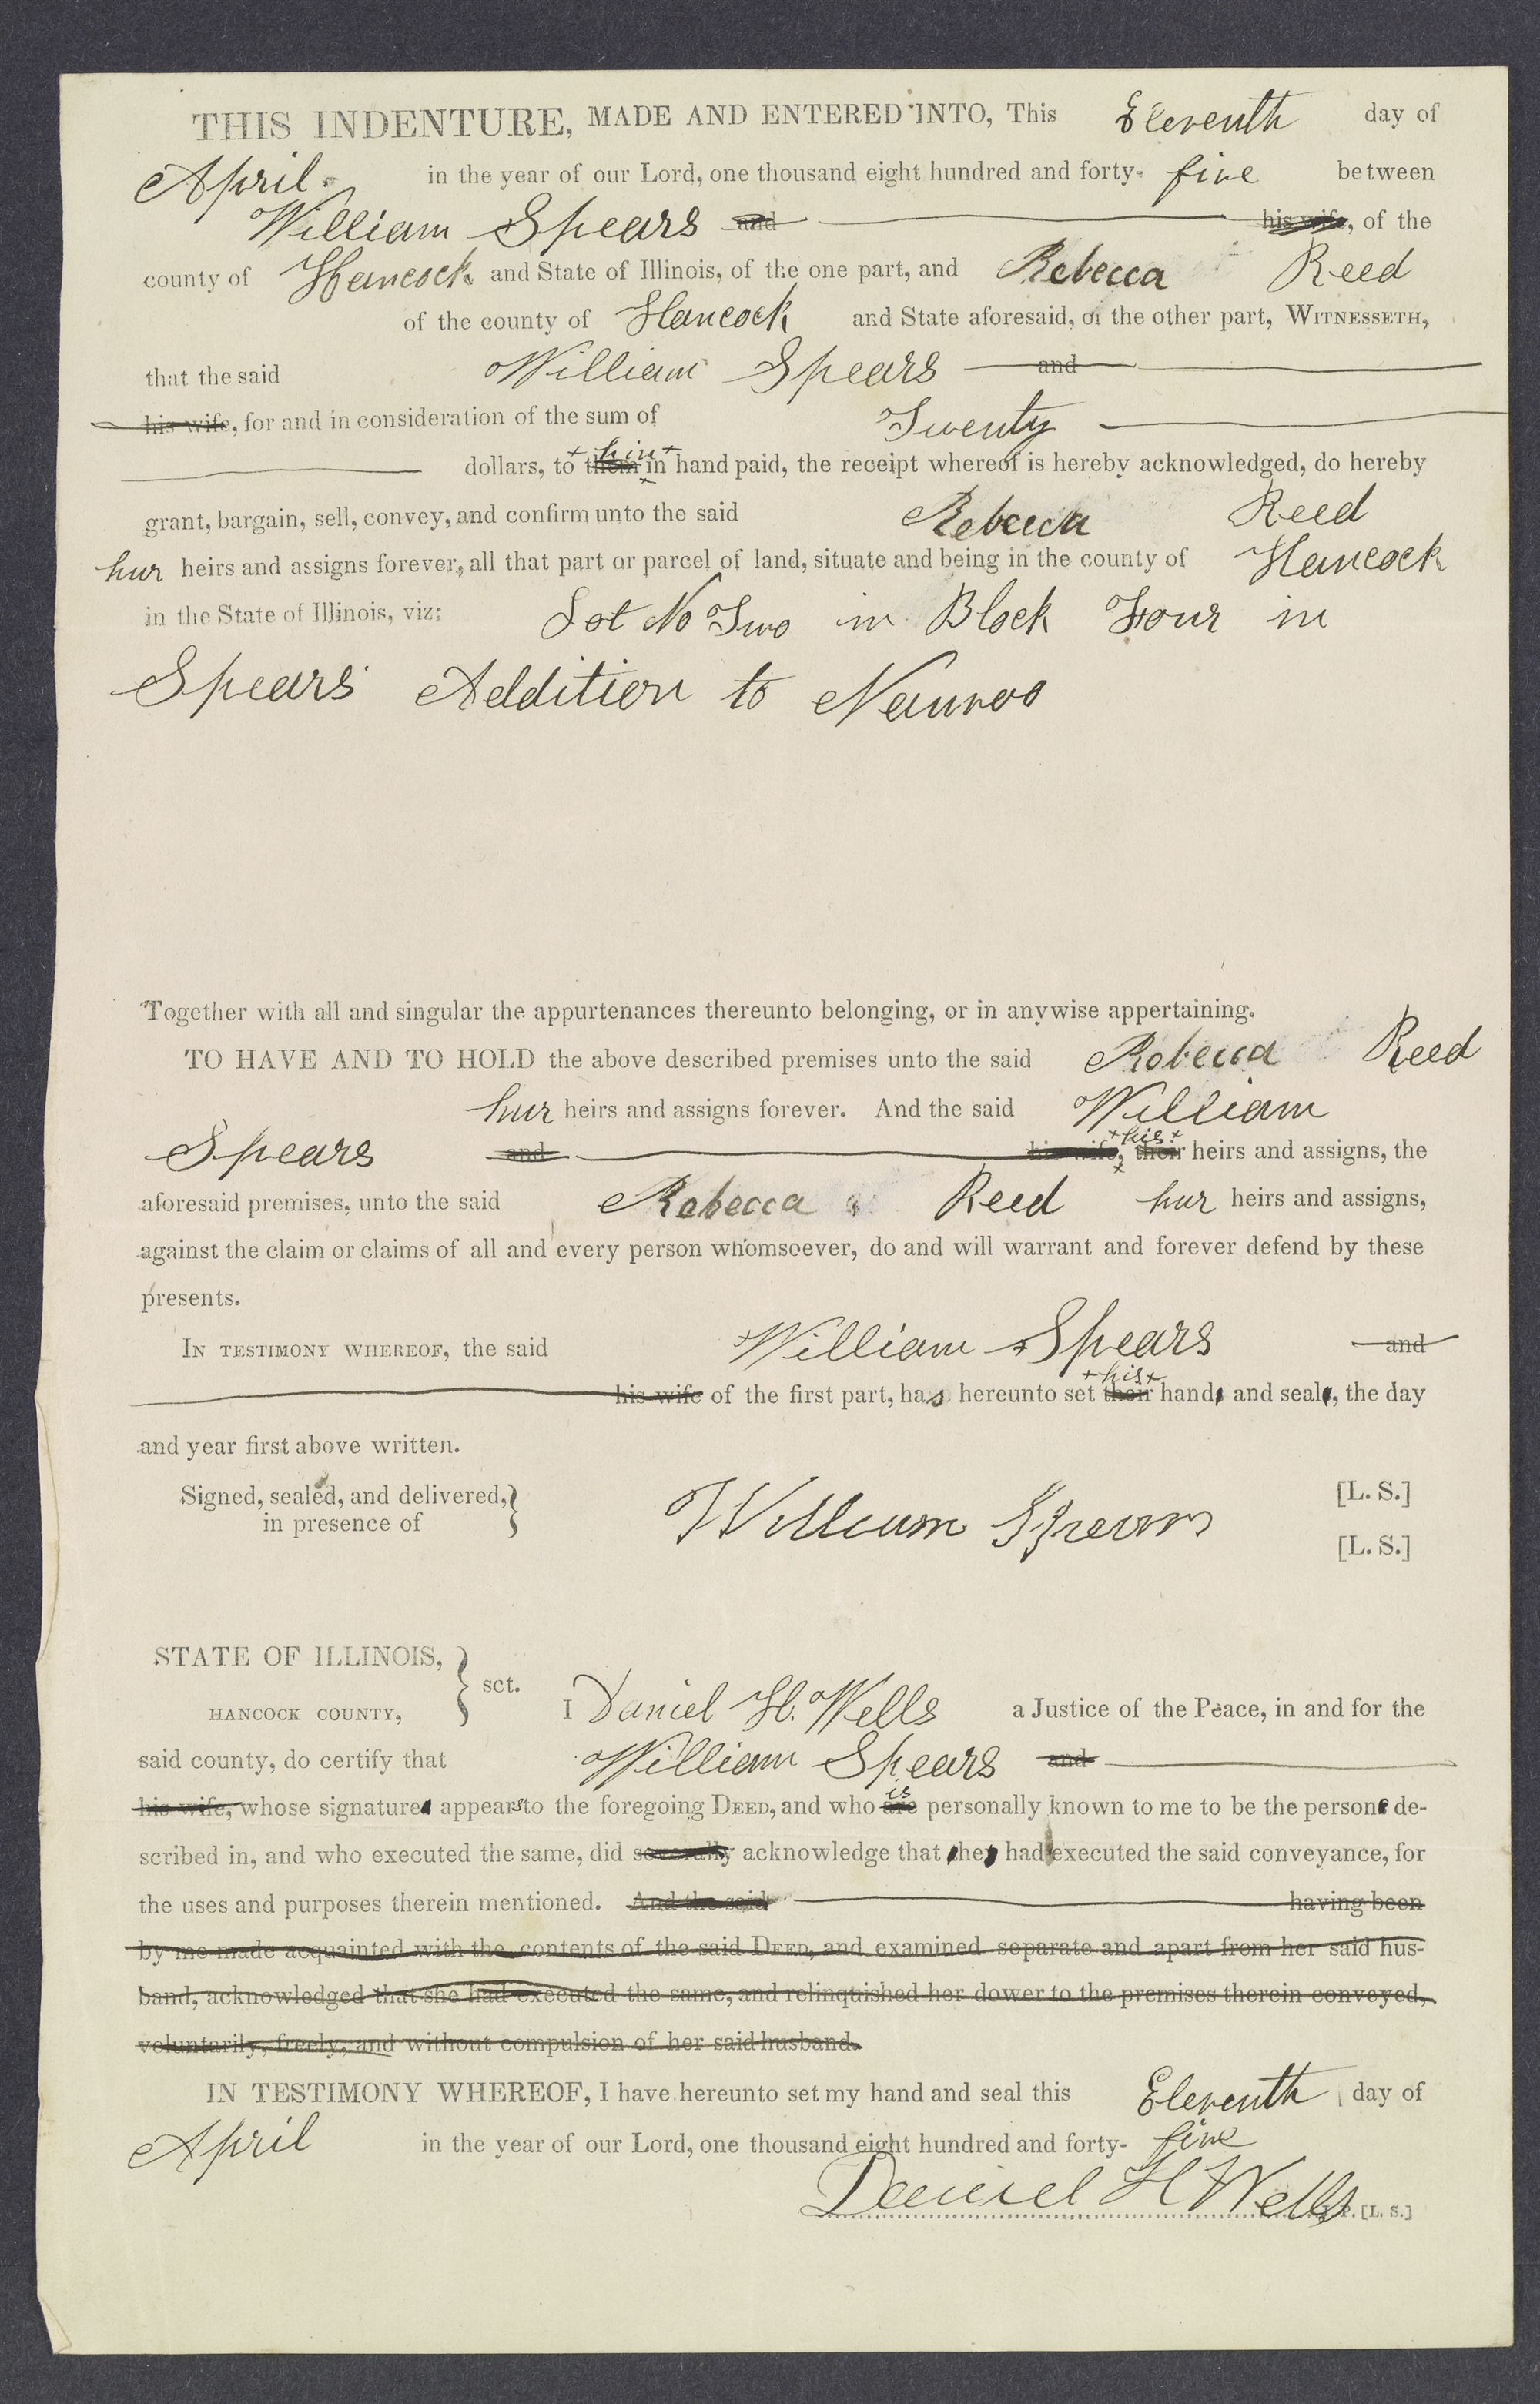 THIS INDENTURE, MADE AND ENTERED INTO, This Eleventh day of
April in the year of our Lord, one thousand eight hundred and forty- five between
William Spears and his wife, of the
county of Hancock and State of Illinois, of the one part, and Rebecca Reed
of the county of Hancock and State aforesaid, of the other part, WITNESSETH,
that the said William Spears and
his wife, for and in consideration of the sum of Twenty
dollars, to them him in hand paid, the receipt whereof is hereby acknowledged, do hereby
grant, bargain, sell, convey, and confirm unto the said Rebecca Reed
hur heirs and assigns forever, all that part or parcel of land, situate and being in the county of Hancock
in the State of Illinois, viz: Lot No Two in Block Four in
Spears Addition to Nauvoo
Together with all and singular the appurtenances thereunto belonging, or in anywise appertaining.
TO HAVE AND TO HOLD the above described premises unto the said Rebecca Reed
hur heirs and assigns forever. And the said William
Spears and his wife, their his heirs and assigns, the
aforesaid premises, unto the said Rebecca Reed hur heirs and assigns,
against the claim or claims of all and every person whomsoever, do and will warrant and forever defend by these
presents.
IN TESTIMONY WHEREOF, the said William Spears and
his wife of the first part, has hereunto set their his hand, and seal, the day
and year first above written.
Signed, sealed, and delivered, in presence of
William Spears [L. S.]
[L. S.]
STATE OF ILLINOIS,
HANCOCK COUNTY, sct. I Daniel H. Wells a Justice of the Peace, in and for the
said county, do certify that William Spears and
his wife, whose signature appears to the foregoing DEED, and who are is personally known to me to be the person de-
scribed in, and who executed the same, did severally acknowledge that he had executed the said conveyance, for
the uses and purposes therein mentioned. And the said having been
by me made acquainted with the contents of the said DEED, and examined separate and apart from her said hus-
band, acknowledged that she had executed the same, and relinquished her dower to the premises therein conveyed,
voluntarily, freely, and without compulsion of her said husband.
IN TESTIMONY WHEREOF, I have hereunto set my hand and seal this Eleventh day of
April in the year of our Lord, one thousand eight hundred and forty- five
Daniel H Wells J. P. [L. S.]